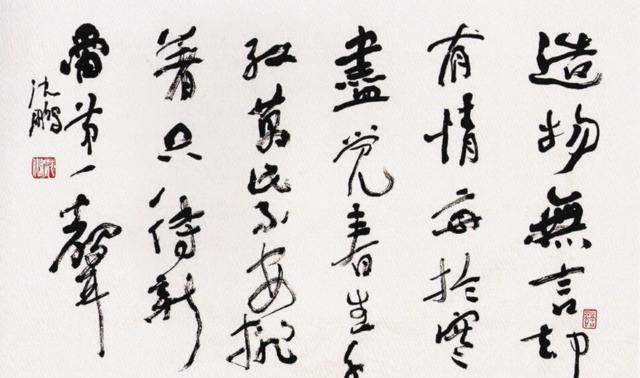 造物無言却
有情每於寒
盡觉春生千
红萬紫安排
著只待新
雷第一聲
沈鹏